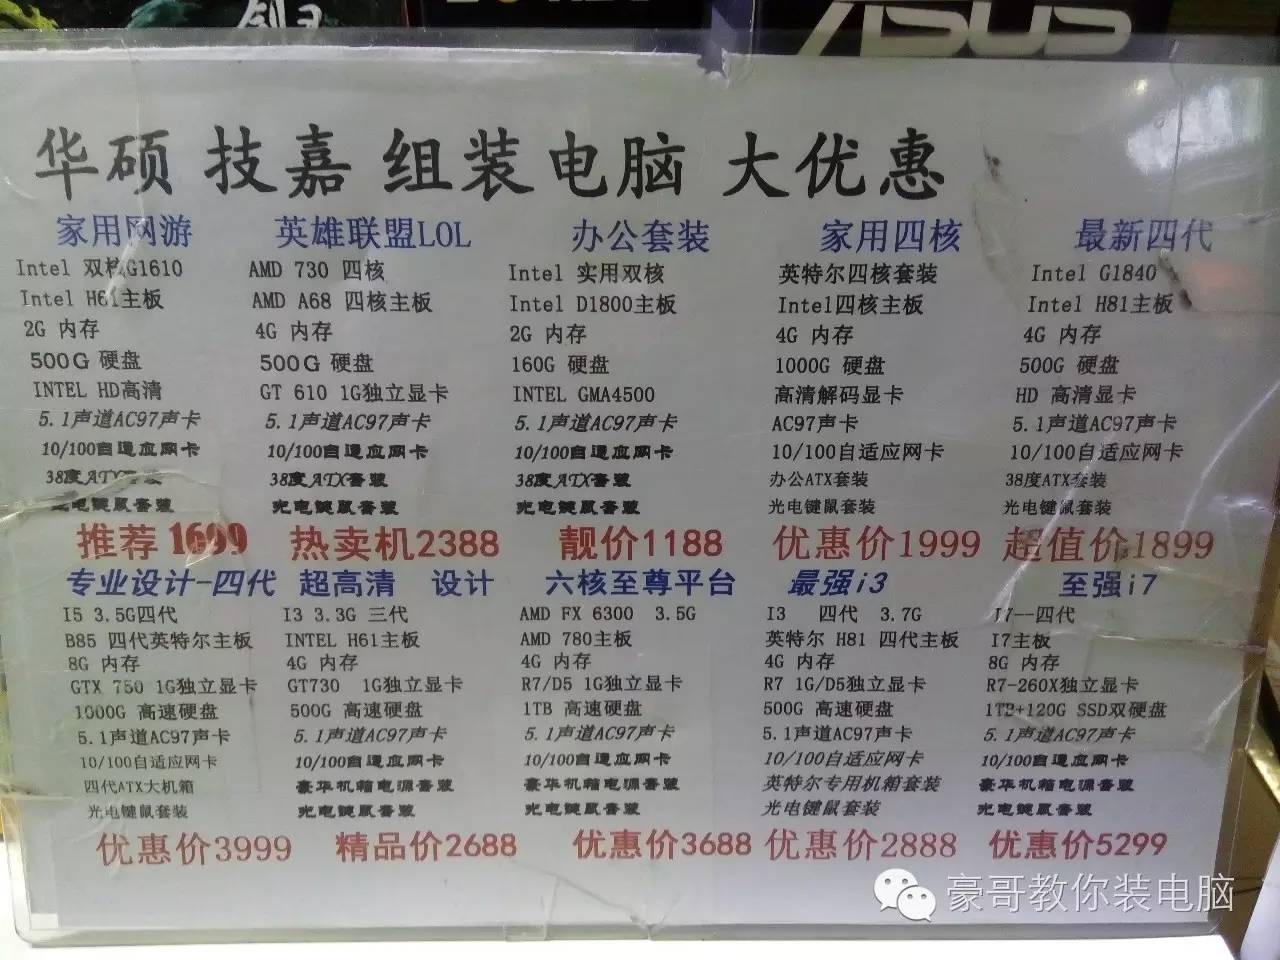 ASUS
华硕 技嘉 组装电脑 大优惠
家用网游
Intel 双核G1610
Intel H61主板
2G 内存
500G 硬盘
INTEL HD高清
5.1声道AC97声卡
10/100自适应网卡
38度ATX套装
光电键鼠套装
推荐1699
英雄联盟LOL
AMD 730 四核
AMD A68 四核主板
4G 内存
500G 硬盘
GT 610 1G独立显卡
5.1声道AC97声卡
10/100自适应网卡
38度ATX套装
光电键鼠套装
热卖机2388
办公套装
Intel 实用双核
Intel D1800主板
2G 内存
160G 硬盘
INTEL GMA4500
5.1声道AC97声卡
10/100自适应网卡
38度ATX套装
光电键鼠套装
靓价1188
家用四核
英特尔四核套装
Intel四核主板
4G 内存
1000G 硬盘
高清解码显卡
AC97声卡
10/100自适应网卡
办公ATX套装
光电键鼠套装
优惠价1999
最新四代
Intel G1840
Intel H81主板
4G 内存
500G 硬盘
HD 高清显卡
5.1声道AC97声卡
10/100自适应网卡
38度ATX套装
光电键鼠套装
超值价1899
专业设计-四代
I5 3.5G四代
B85 四代英特尔主板
8G 内存
GTX 750 1G独立显卡
1000G 高速硬盘
5.1声道AC97声卡
10/100自适应网卡
四代ATX大机箱
光电键鼠套装
优惠价3999
超高清 设计
I3 3.3G 三代
INTEL H61主板
4G 内存
GT730 1G独立显卡
500G 高速硬盘
5.1声道AC97声卡
10/100自适应网卡
豪华机箱电源套装
光电键鼠套装
精品价2688
六核至尊平台
AMD FX 6300 3.5G
AMD 780主板
4G 内存
R7/D5 1G独立显卡
1TB 高速硬盘
5.1声道AC97声卡
10/100自适应网卡
豪华机箱电源套装
光电键鼠套装
优惠价3688
最强i3
I3 四代 3.7G
英特尔 H81 四代主板
4G 内存
R7 1G/D5独立显卡
500G 高速硬盘
5.1声道AC97声卡
10/100自适应网卡
英特尔专用机箱套装
光电键鼠套装
优惠价2888
至强i7
I7--四代
I7主板
8G 内存
R7-260X独立显卡
1TB+120G SSD双硬盘
5.1声道AC97声卡
10/100自适应网卡
豪华机箱电源套装
光电键鼠套装
优惠价5299
豪哥教你装电脑